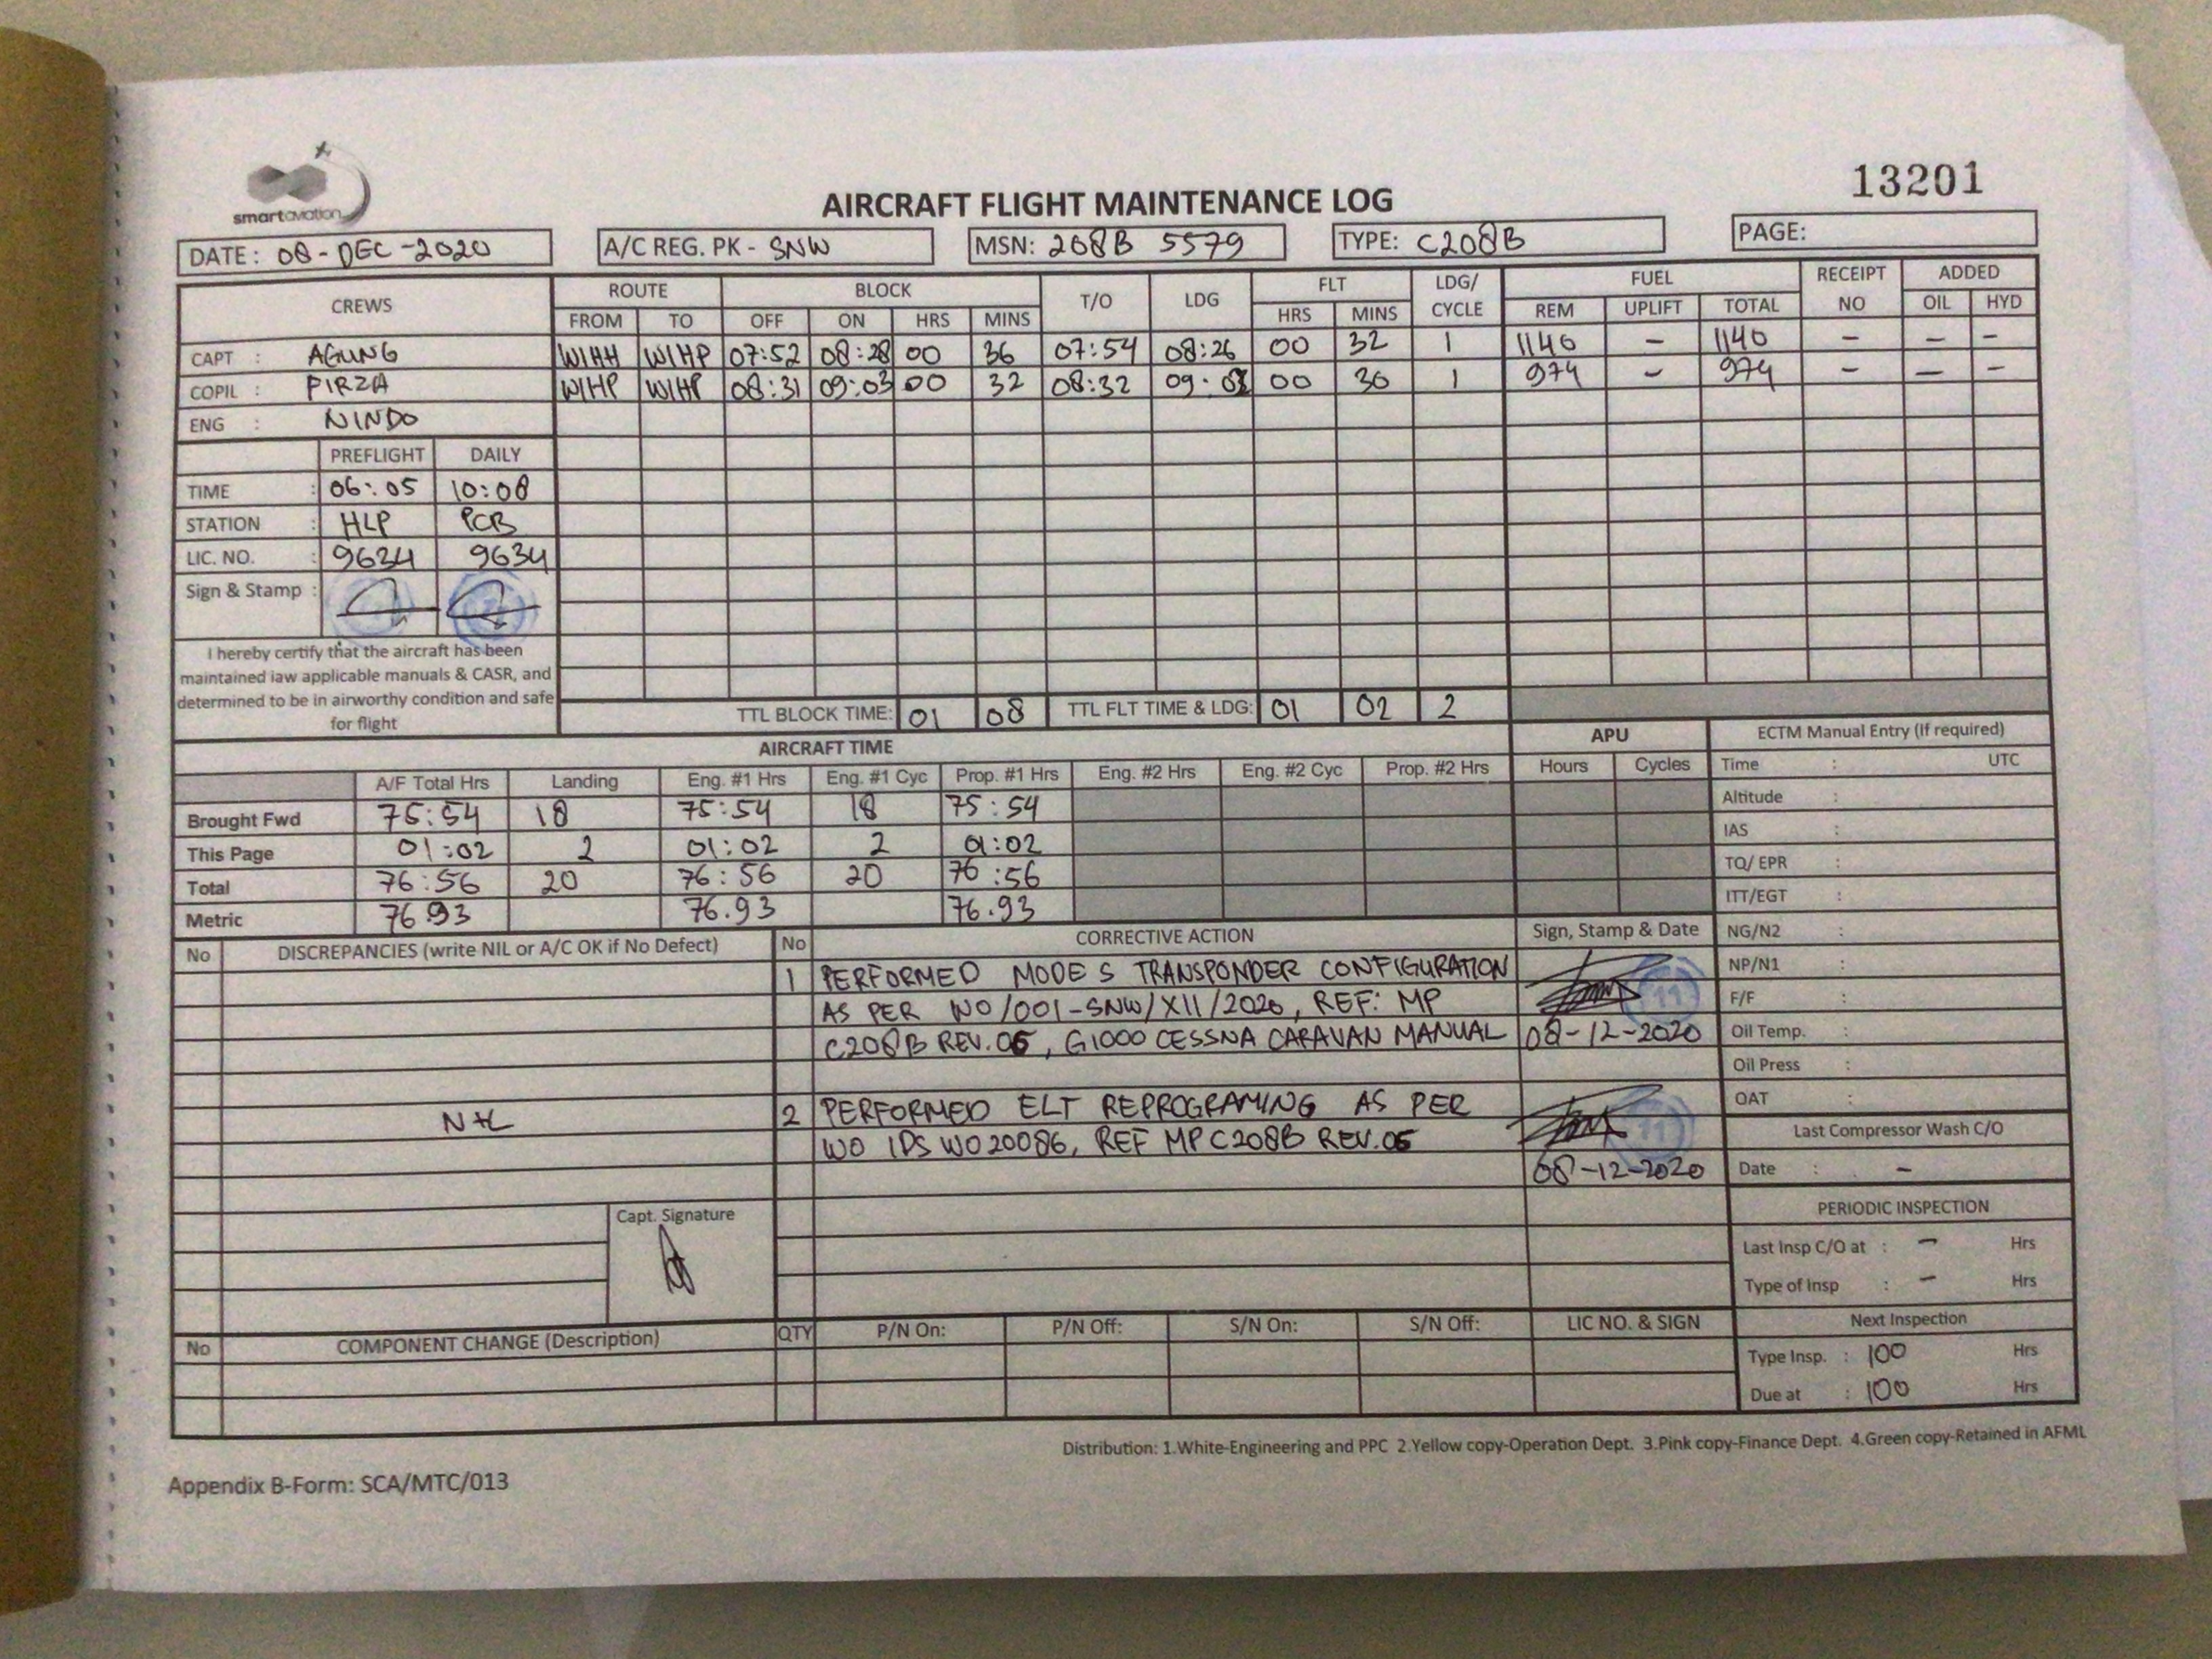 smartaviation
13201
AIRCRAFT FLIGHT MAINTENANCE LOG
DATE: 08-DEC-2020 A/C REG. PK - SNW MSN: 208B 5579 TYPE: C208B PAGE:
CREWS ROUTE BLOCK T/O LDG FLT LDG/ CYCLE FUEL RECEIPT NO ADDED
FROM TO OFF ON HRS MINS HRS MINS REM UPLIFT TOTAL OIL HYD
CAPT : AGUNG WIHH WIHP 07:52 08:28 00 36 07:54 08:26 00 32 1 1140 - 1140 - - -
COPIL : PIRZA WIHP WIHP 08:31 09:03 00 32 08:32 09:02 00 30 1 974 - 974 - - -
ENG : NINDO
PREFLIGHT DAILY
TIME : 06:05 10:00
STATION : HLP PCB
LIC. NO. : 9634 9634
Sign & Stamp :
I hereby certify that the aircraft has been
maintained iaw applicable manuals & CASR, and
determined to be in airworthy condition and safe
for flight
TTL BLOCK TIME: 01 08 TTL FLT TIME & LDG: 01 02 2
AIRCRAFT TIME APU
A/F Total Hrs Landing Eng. #1 Hrs Eng. #1 Cyc Prop. #1 Hrs Eng. #2 Hrs Eng. #2 Cyc Prop. #2 Hrs Hours Cycles
Brought Fwd 75:54 18 75:54 18 75:54
This Page 01:02 2 01:02 2 01:02
Total 76:56 20 76:56 20 76:56
Metric 76.93 76.93 76.93
ECTM Manual Entry (If required)
Time : UTC
Altitude :
IAS :
TQ/ EPR :
ITT/EGT :
NG/N2 :
NP/N1 :
F/F :
Oil Temp. :
Oil Press :
OAT :
Last Compressor Wash C/O
Date : -
PERIODIC INSPECTION
Last Insp C/O at : - Hrs
Type of Insp : - Hrs
Next Inspection
Type Insp. : 100 Hrs
Due at : 100 Hrs
No DISCREPANCIES (write NIL or A/C OK if No Defect) No CORRECTIVE ACTION Sign, Stamp & Date
1 PERFORMED MODE S TRANSPONDER CONFIGURATION
AS PER WO/001-SNW/XII/2020, REF: MP
C208B REV.05, G1000 CESSNA CARAVAN MANUAL 08-12-2020
NIL
2 PERFORMED ELT REPROGRAMING AS PER
WO IDS WO20086, REF MP C208B REV.05
08-12-2020
Capt. Signature
No COMPONENT CHANGE (Description) QTY P/N On: P/N Off: S/N On: S/N Off: LIC NO. & SIGN
Distribution: 1.White-Engineering and PPC 2.Yellow copy-Operation Dept. 3.Pink copy-Finance Dept. 4.Green copy-Retained in AFML
Appendix B-Form: SCA/MTC/013